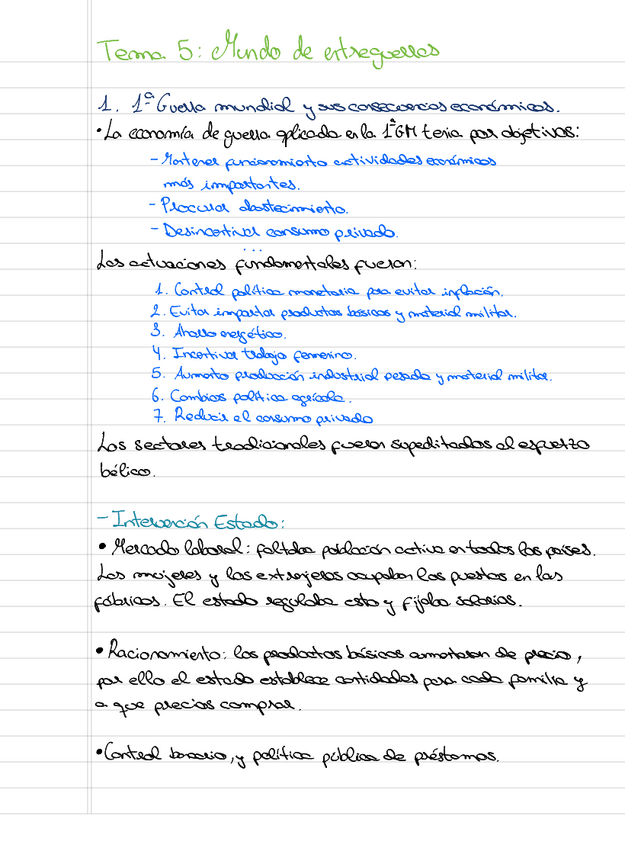 Tema 5: Mundo de entreguerras
1. 1ª Guerra mundial y sus consecuencias económicas.
• La economía de guerra aplicada en la 1ªGM tenia por objetivos:
- Mantener funcionamiento actividades económicas
más importantes.
- Procurar abastecimiento.
- Desincentivar consumo privado.
...
Las actuaciones fundamentales fueron:
1. Control política monetaria para evitar inflación.
2. Evitar importar productos básicos y material militar.
3. Ahorro energético.
4. Incentivar trabajo femenino.
5. Aumento producción industrial pesada y material militar.
6. Cambios política agrícola.
7. Reducir el consumo privado
Los sectores tradicionales fueron supeditados al esfuerzo
bélico.
- Intervención Estado:
• Mercado laboral: faltaba población activa en todos los países.
Las mujeres y los extranjeros ocupaban los puestos en las
fábricas. El estado regulaba esto y fijaba salarios.
• Racionamiento: los productos básicos aumentaron de precio,
por ello el estado establece cantidades para cada familia y
a que precios comprar.
• Control bancario, y política pública de préstamos.